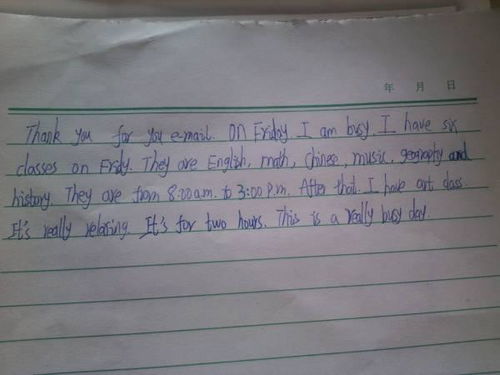 年 月 日
Thank you for you e-mail. On Friday I am busy. I have six
classes on Fridy. They are English, math, Chinese, music, geography and
history. They are from 8:00 a.m. to 3:00 p.m. After that. I have art class.
It's really relaxing. It's for two hours. This is a really busy day.